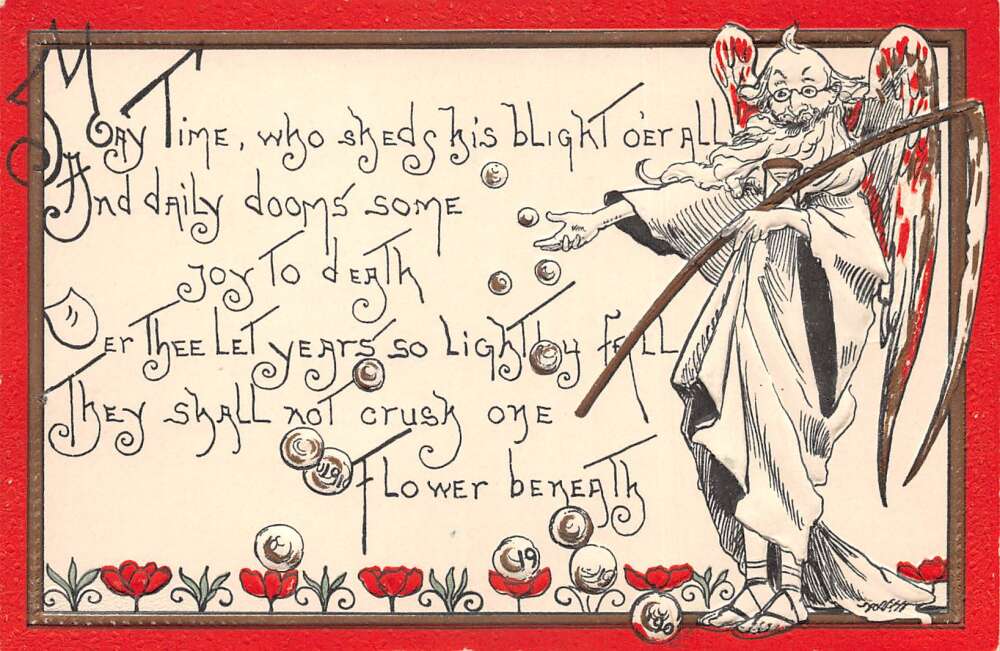 May Time, who sheds his blight o'er all
And daily dooms some
joy to death
O'er Thee let years so lightly fall
They shall not crush one
flower beneath
1910
19